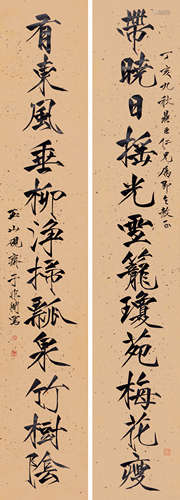 帶曉日搖光雲籠瓊苑梅花瘦
丁亥九秋仁兄屬即乞教正
有東風垂柳淨掃瓢泉竹樹陰
玉山硯齋于非闇寫